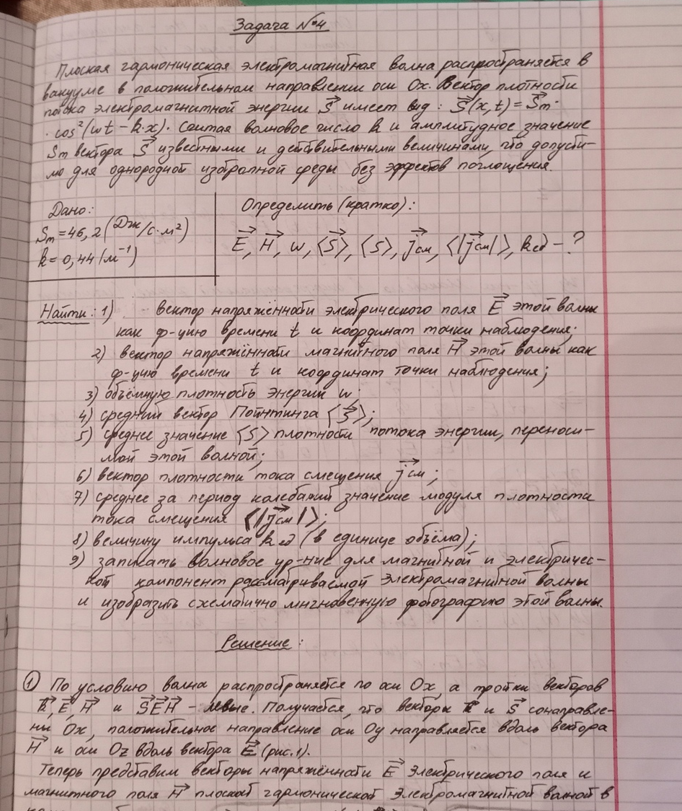 Задача №4
Плоская гармоническая электромагнитная волна распространяется в
вакууме в положительном направлении оси Ox. Вектор плотности
потока электромагнитной энергии S⃗ имеет вид: S⃗(x,t)=S⃗m·
·cos²(ωt-kx). Считая волновое число k и амплитудное значение
Sm вектора S⃗ известными и действительными величинами, что допусти-
мо для однородной изотропной среды без эффектов поглощения.
Дано:
Sm=46,2(Дж/с·м²)
k=0,44(м⁻¹)
Определить (кратко):
E⃗, H⃗, w, ⟨S⃗⟩, ⟨S⟩, j⃗см, ⟨|j⃗см|⟩, kед-?
Найти: 1) вектор напряжённости электрического поля E⃗ этой волны
как ф-цию времени t и координат точки наблюдения;
2) вектор напряжённости магнитного поля H⃗ этой волны как
ф-цию времени t и координат точки наблюдения;
3) объёмную плотность энергии w;
4) средний вектор Пойнтинга ⟨S⃗⟩;
5) среднее значение ⟨S⟩ плотности потока энергии, переноси-
мой этой волной;
6) вектор плотности тока смещения j⃗см;
7) среднее за период колебаний значение модуля плотности
тока смещения ⟨|j⃗см|⟩;
8) величину импульса kед (в единице объёма);
9) записать волновое ур-ние для магнитной и электричес-
кой компонент рассматриваемой электромагнитной волны
и изобразить схематично мгновенную фотографию этой волны.
Решение:
① По условию волна распространяется по оси Ox, а тройки векторов
k⃗,E⃗,H⃗ и S⃗E⃗H⃗ - левые. Получается, что векторы k⃗ и S⃗ сонаправле-
ны Ox, положительное направление оси Oy направляется вдоль вектора
H⃗ и оси Oz вдоль вектора E⃗ (рис.1).
Теперь представим векторы напряжённости E⃗ электрического поля и
магнитного поля H⃗ плоской гармонической электромагнитной волной в